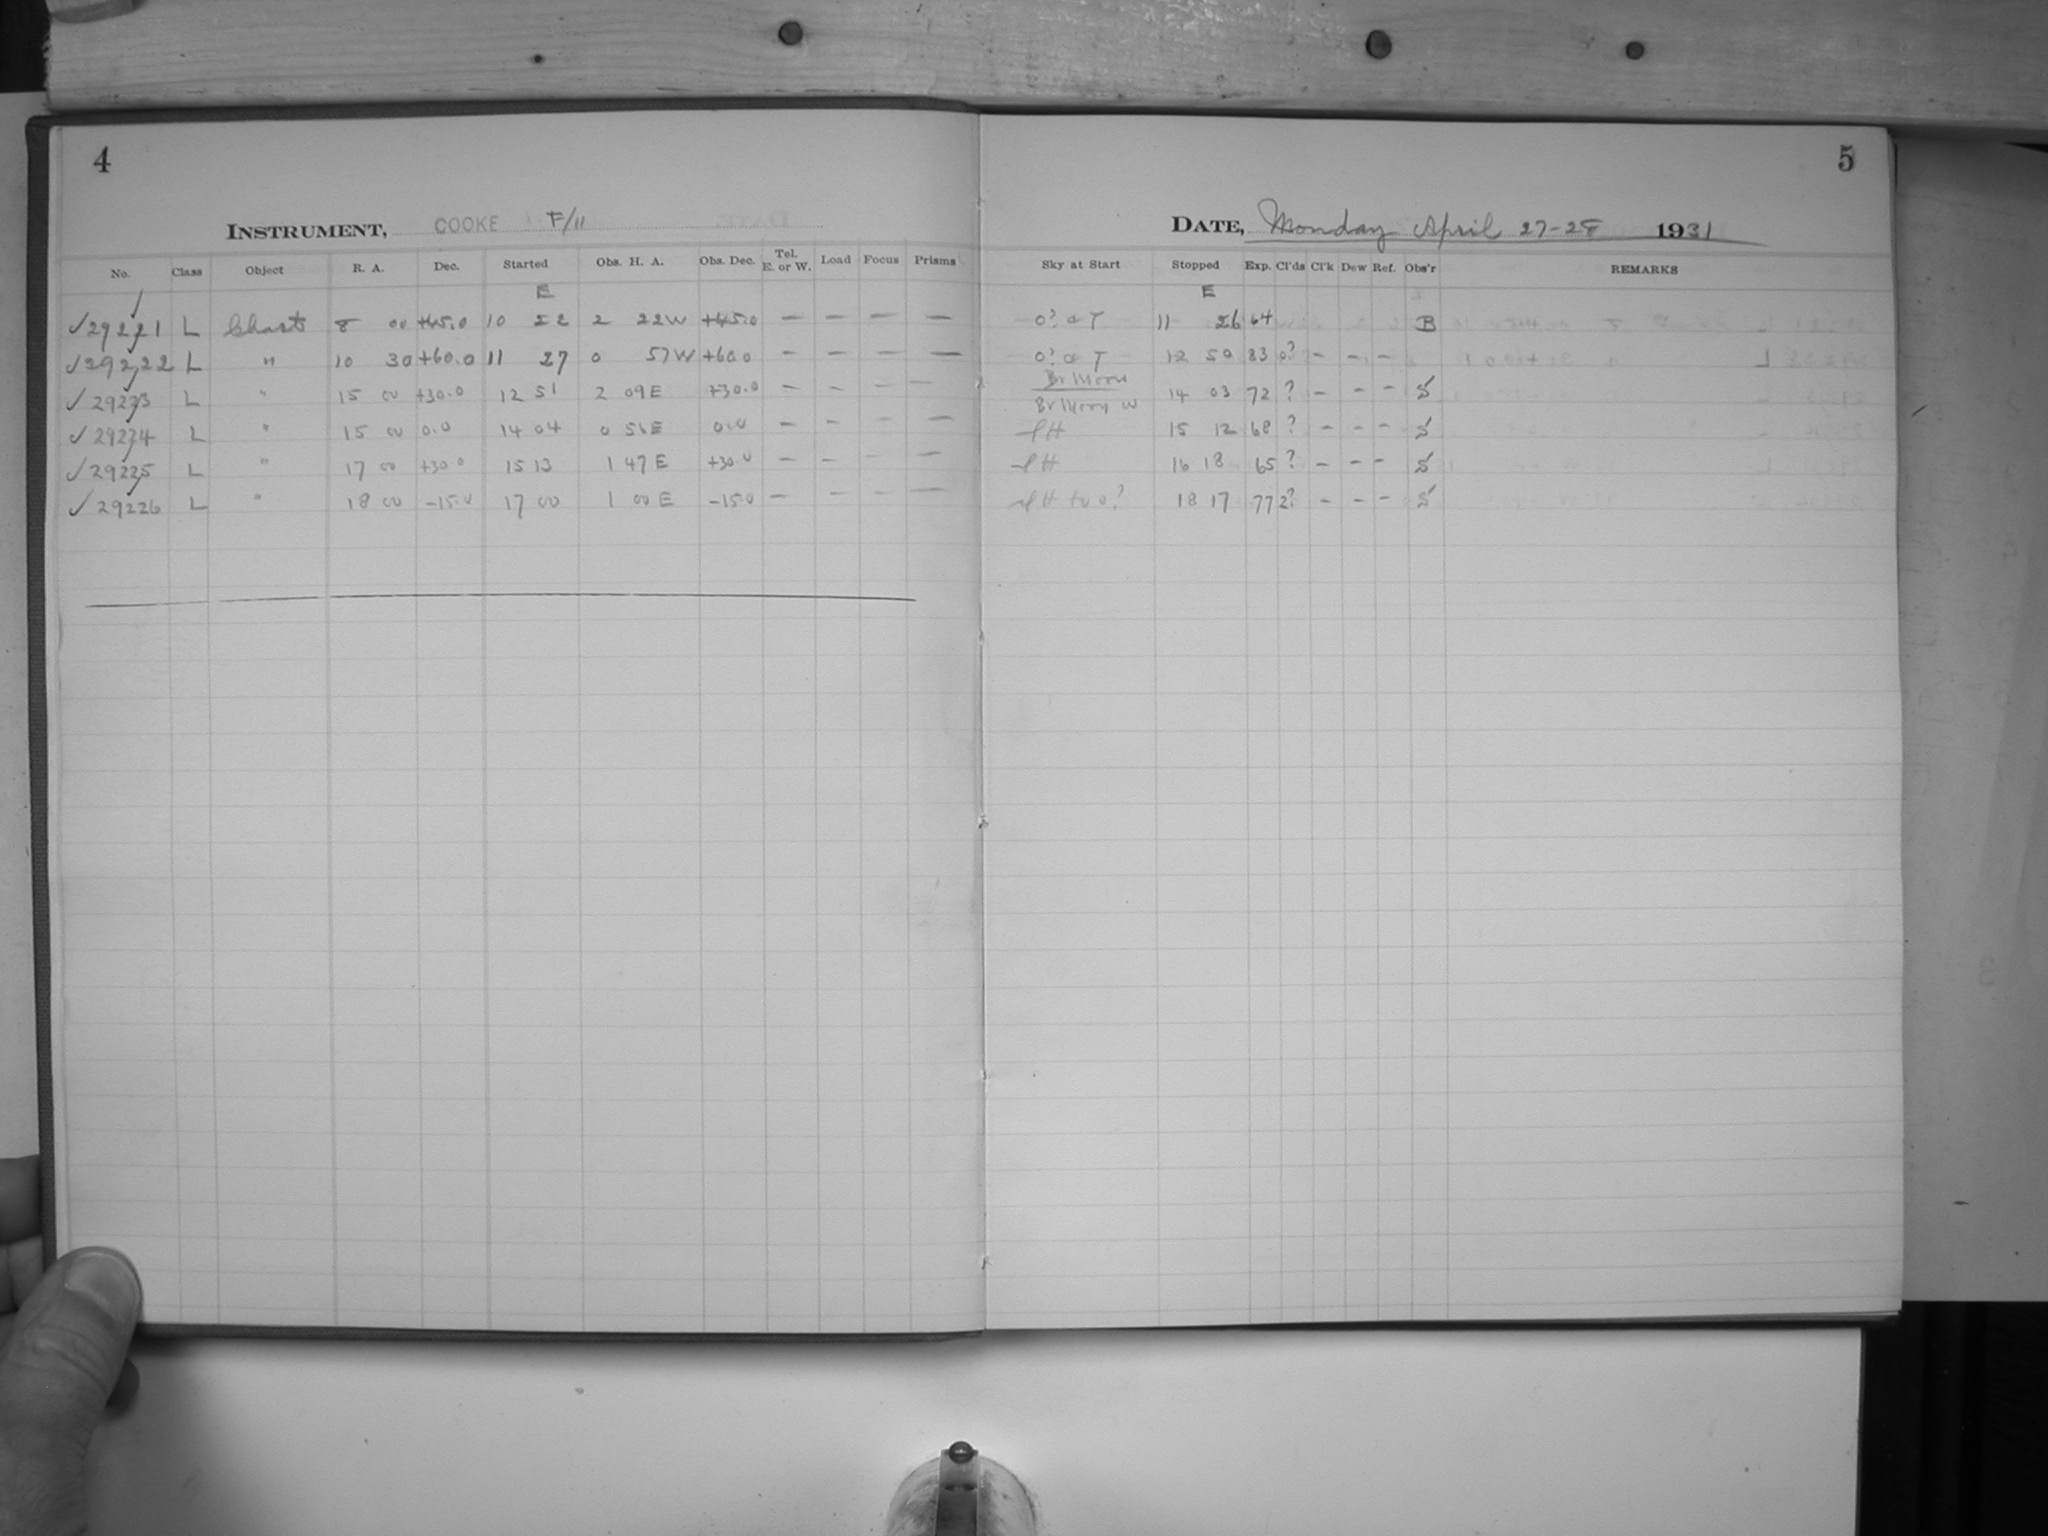 4
INSTRUMENT, COOKE F/11
No. Class Object R. A. Dec. Started Obs. H. A. Obs. Dec. Tel. E. or W. Load Focus Prisms
E
✓29221 L Chart 8 00 +45.0 10 22 2 22W +45.0 — — — —
✓29222 L " 10 30 +60.0 11 27 0 57W +60.0 — — — —
✓29223 L " 15 00 +30.0 12 51 2 09E +30.0 — — — —
✓29224 L " 15 00 0.0 14 04 0 56E 0.0 — — — —
✓29225 L " 17 00 +30.0 15 13 1 47E +30.0 — — — —
✓29226 L " 18 00 -15.0 17 00 1 00E -15.0 — — — —
5
DATE, Monday April 27-28 1931
Sky at Start Stopped Exp. Cl'ds Cl'k Dew Ref. Obs'r REMARKS
E
0? & T 11 26 64 B
0? & T 12 50 83 0? — — —
Br Moon
Br Moon W 14 03 72 ? — — — S
H 15 12 68 ? — — — S
H 16 18 65 ? — — — S
H to 0? 18 17 77 2? — — — S